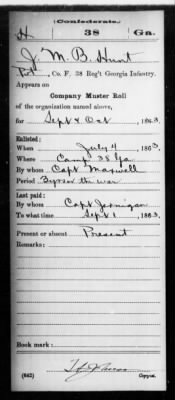 Confederate.
H 38 Ga.
J. M. B. Hunt
Pvt, Co. F, 38 Reg't Georgia Infantry.
Appears on
Company Muster Roll
of the organization named above,
for Sept & Oct, 1863.
Enlisted:
When July 4, 1863.
Where Camp 38 Ga
By whom Capt Maxwell
Period 3 yrs or the war
Last paid:
By whom Capt Jernigan
To what time Sept 1, 1863.
Present or absent Present
Remarks:
Book mark:
(642) Copyist.